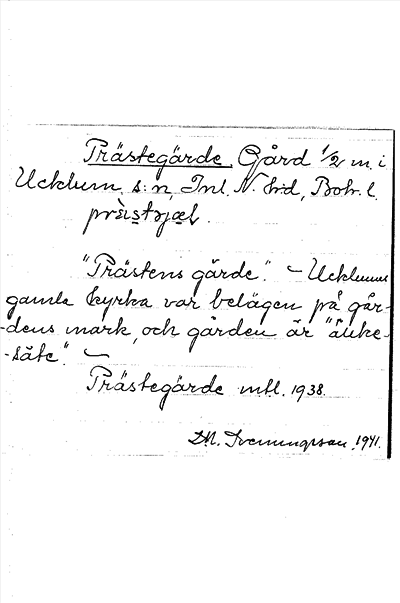 Prästegärde Gård 1/2 m. i
Ucklum s:n, Inl. N. hd, Boh. l.
"Prästens gärde". – Ucklums
gamla kyrka var belägen på går-
-dens mark, och gården är "änke-
-säte". –
Prästegärde mtl. 1938.
1941.